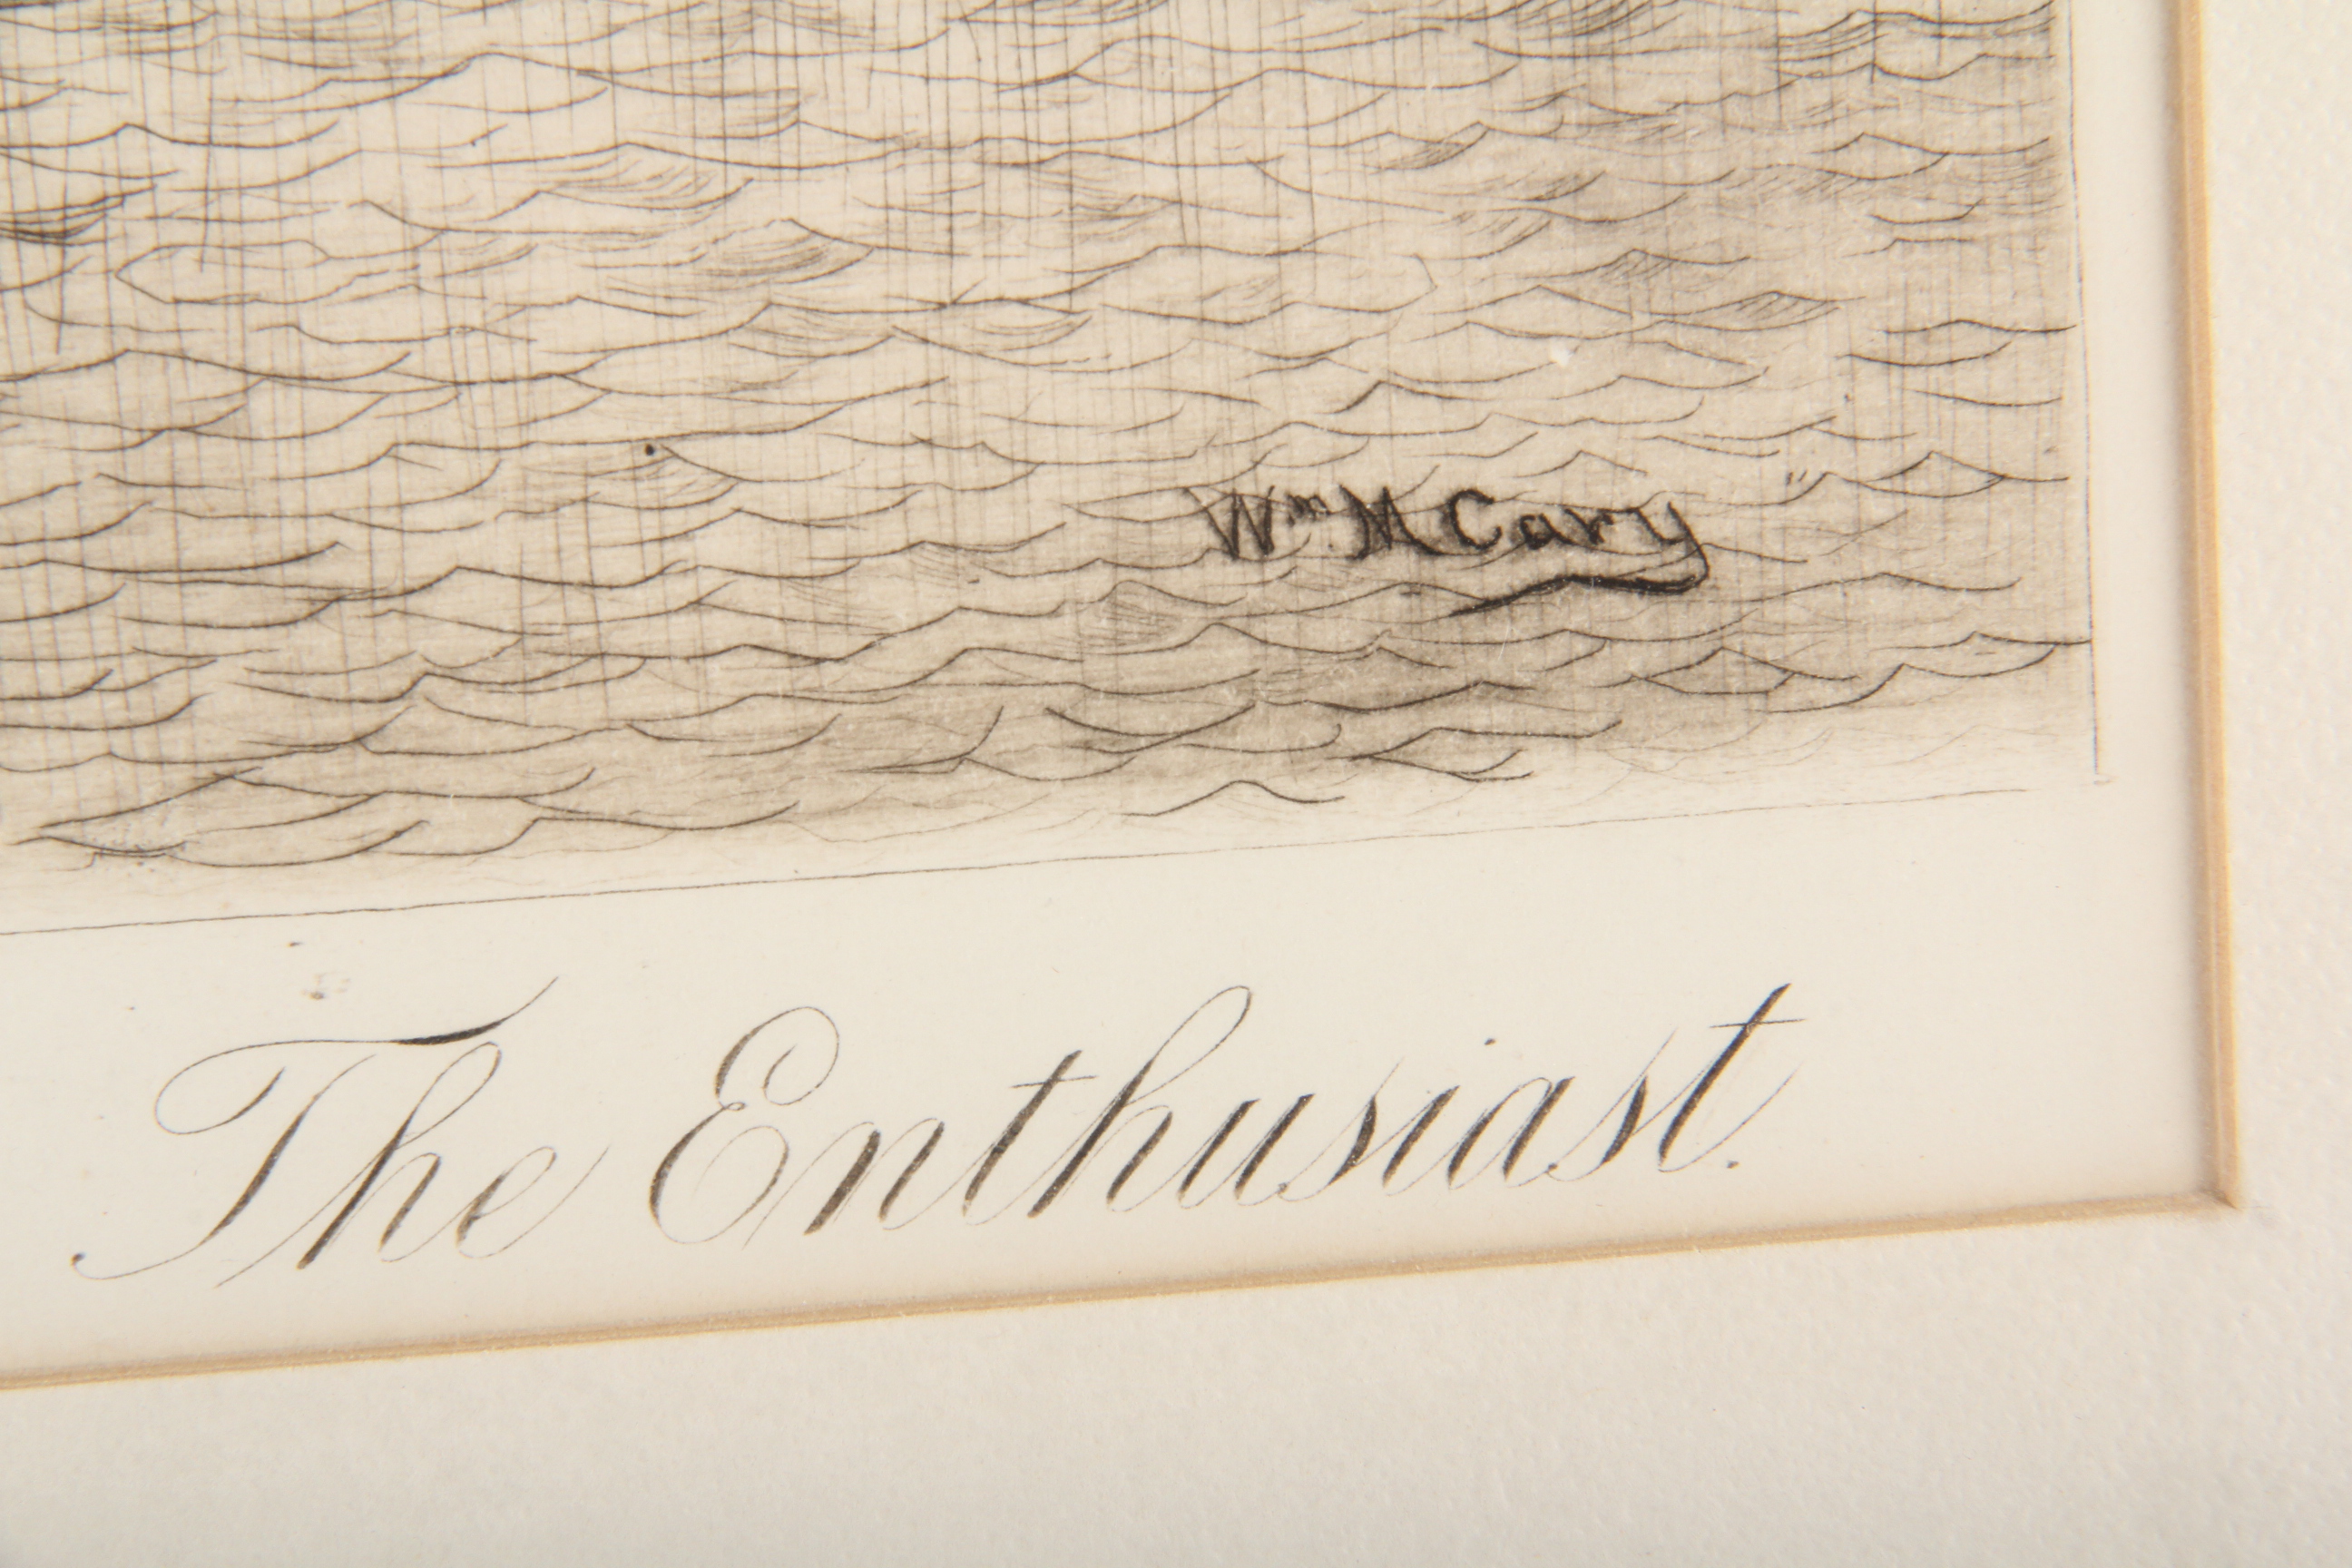 Wm M Cary
The Enthusiast.